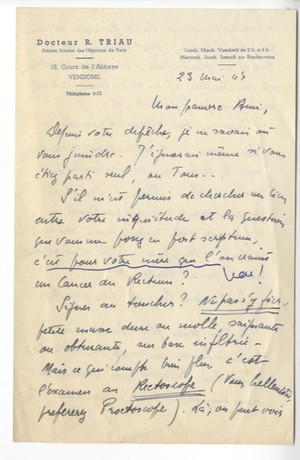 Docteur R. TRIAU
Ancien Interne des Hôpitaux de Paris
18, Cours de l'Abbaye
VENDOME
Téléphone 9-71
Lundi, Mardi, Vendredi de 2 h. à 4 h.
Mercredi, Jeudi, Samedi sur Rendez-vous
23 mai 45
Mon pauvre Ami,
Depuis votre dépêche, je ne savais où
vous joindre. J'ignorais même si vous
étiez parti seul, ou Tous...
S'il m'est permis de chercher un lien
entre votre inquiétude et la question
que vous me posez en post scriptum,
c'est pour votre mère que l'on craint
un Cancer du Rectum ?
Signes au toucher ? Ne pas s'y fier.
petite masse dure ou molle, saignante
ou obturante, sur base infiltrée -
Mais ce qui compte bien plus, c'est
l'examen au Rectoscope (Vous, helléniste,
préférerez Proctoscope). Là, on peut voir